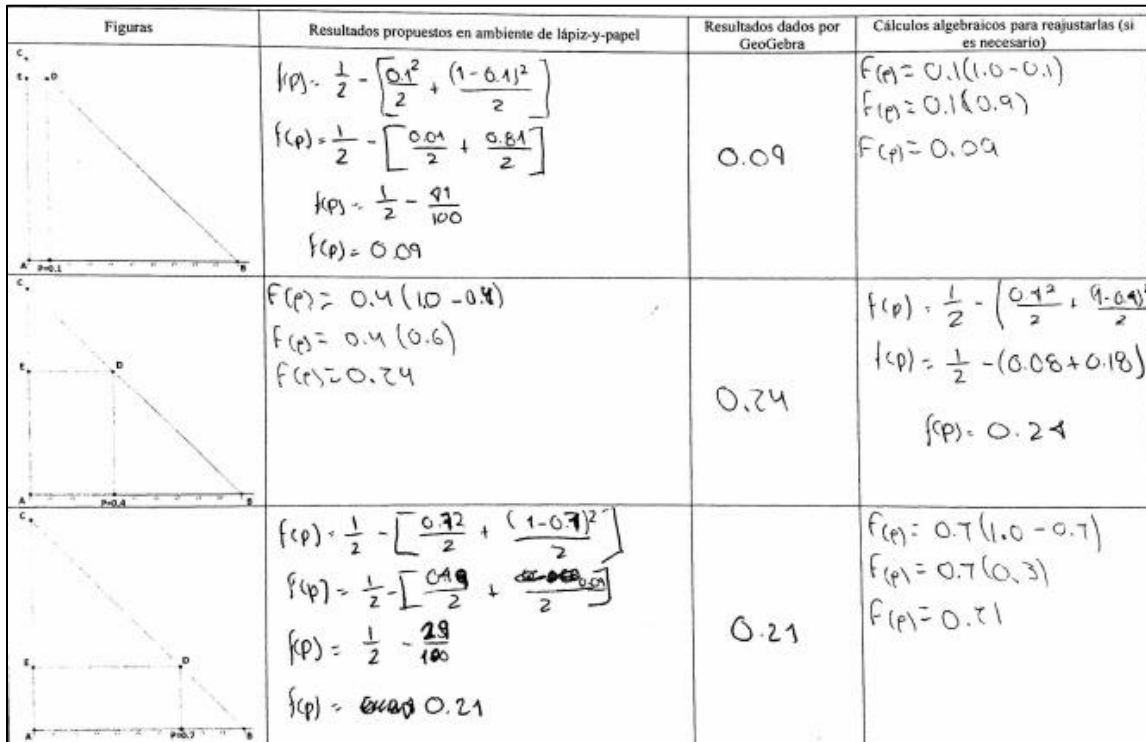 Figuras
Resultados propuestos en ambiente de lápiz-y-papel
Resultados dados por GeoGebra
Cálculos algebraicos para reajustarlas (si es necesario)
C
E D
A P=0.1 B
f(p) = 1/2 - [0.1²/2 + (1-0.1)²/2]
f(p) = 1/2 - [0.01/2 + 0.81/2]
f(p) = 1/2 - 41/100
f(p) = 0.09
0.09
F(p) = 0.1(1.0-0.1)
F(p) = 0.1(0.9)
F(p) = 0.09
C
E D
A P=0.4 B
F(p) = 0.4(1.0-0.4)
F(p) = 0.4(0.6)
F(p) = 0.24
0.24
f(p) = 1/2 - (0.4²/2 + (1-0.4)²/2
f(p) = 1/2 - (0.08+0.18)
f(p) = 0.24
C
E D
A P=0.7 B
f(p) = 1/2 - [0.7²/2 + (1-0.7)²/2]
f(p) = 1/2 - [0.49/2 + 0.09/2]
f(p) = 1/2 - 29/100
f(p) = 0.21
0.21
F(p) = 0.7(1.0-0.7)
F(p) = 0.7(0.3)
F(p) = 0.21